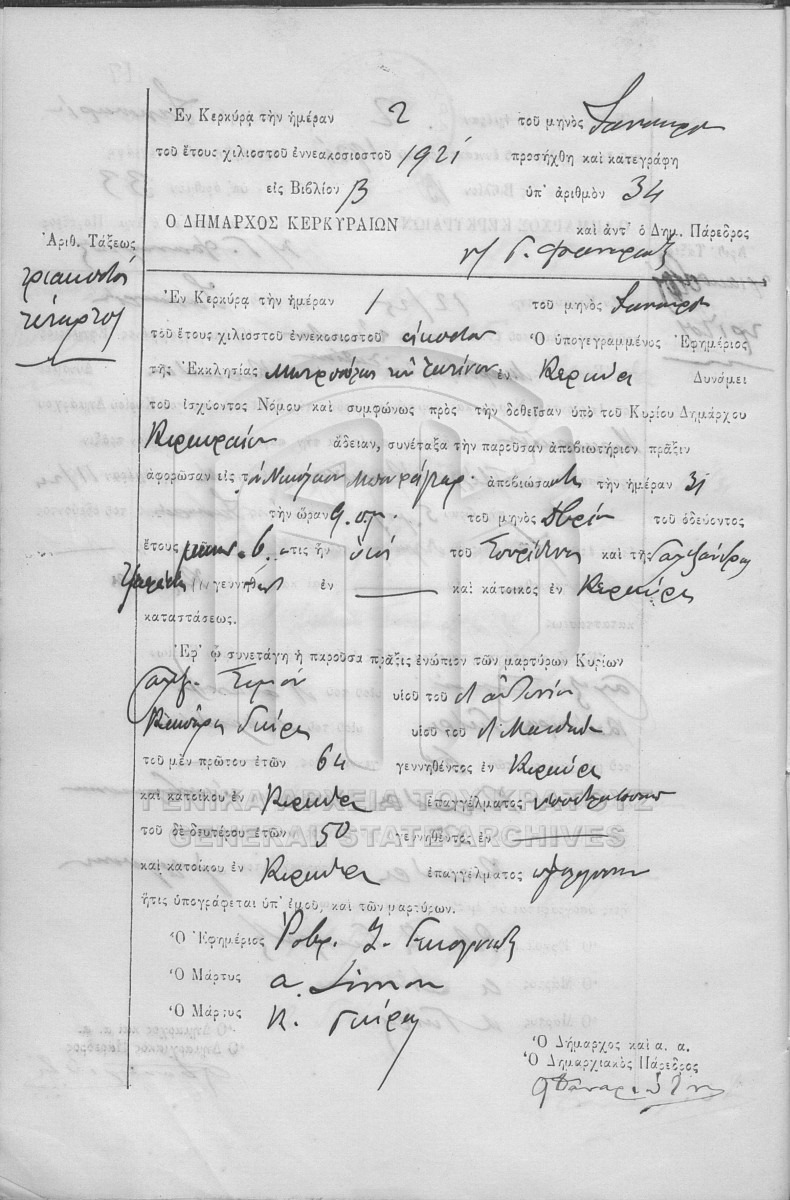 Ἐν Κερκύρᾳ τὴν ἡμέραν 2 τοῦ μηνὸς Ἰανουαρίου
τοῦ ἔτους χιλιοστοῦ ἐννεακοσιοστοῦ 1921 προσήχθη καὶ κατεγράφη
εἰς Βιβλίον Β ὑπ' ἀριθμὸν 34
Ο ΔΗΜΑΡΧΟΣ ΚΕΡΚΥΡΑΙΩΝ καὶ ἀντ' ὁ Δημ. Πάρεδρος
Ἀριθ. Τάξεως
τριακοστὸς
τέταρτος
Ἐν Κερκύρᾳ τὴν ἡμέραν 1 τοῦ μηνὸς Ἰανουαρίου
τοῦ ἔτους χιλιοστοῦ ἐννεκοσιοστοῦ εἰκοστοῦ Ὁ ὑπογεγραμμένος Ἐφημέριος
τῆς Ἐκκλησίας Μητροπόλεως τῶν Λατίνων ἐν Κερκύρᾳ Δυνάμει
τοῦ ἰσχύοντος Νόμου καὶ συμφώνως πρὸς τὴν δοθεῖσαν ὑπὸ τοῦ Κυρίου Δημάρχου
Κερκυραίων ἄδειαν, συνέταξα τὴν παροῦσαν ἀποβιωτήριον πρᾶξιν
ἀφορῶσαν εἰς τὸν Νικόλαον ἀποβιώσαντα τὴν ἡμέραν 31
τὴν ὥραν 9 π.μ. τοῦ μηνὸς Δβρίου τοῦ ὁδεύοντος
ἔτους μηνῶν 6 ὅστις ἦν υἱὸς τοῦ Σπυρίδωνος καὶ τῆς Ἀλεξάνδρας
γεννηθεὶς ἐν — καὶ κάτοικος ἐν Κερκύρᾳ
καταστάσεως.
Ἐφ' ᾧ συνετάγη ἡ παροῦσα πρᾶξις ἐνώπιον τῶν μαρτύρων Κυρίων
Ἀλεξ. Σιμὸν υἱοῦ τοῦ Ἀντωνίου
Γκίρης υἱοῦ τοῦ
τοῦ μὲν πρώτου ἐτῶν 64 γεννηθέντος ἐν Κερκύρᾳ
καὶ κατοίκου ἐν Κερκύρᾳ ἐπαγγέλματος
ΓΕΝΙΚΑ ΑΡΧΕΙΑ ΤΟΥ ΚΡΑΤΟΥΣ
τοῦ δὲ δευτέρου ἐτῶν 50 γεννηθέντος ἐν —
GENERAL STATE ARCHIVES
καὶ κατοίκου ἐν Κερκύρᾳ ἐπαγγέλματος
ἥτις ὑπογράφεται ὑπ' ἐμοῦ, καὶ τῶν μαρτύρων.
Ὁ Ἐφημέριος
Ὁ Μάρτυς a. Simon
Ὁ Μάρτυς Κ. Γκίρης
Ὁ Δήμαρχος καὶ α. α.
Ὁ Δημαρχιακὸς Πάρεδρος